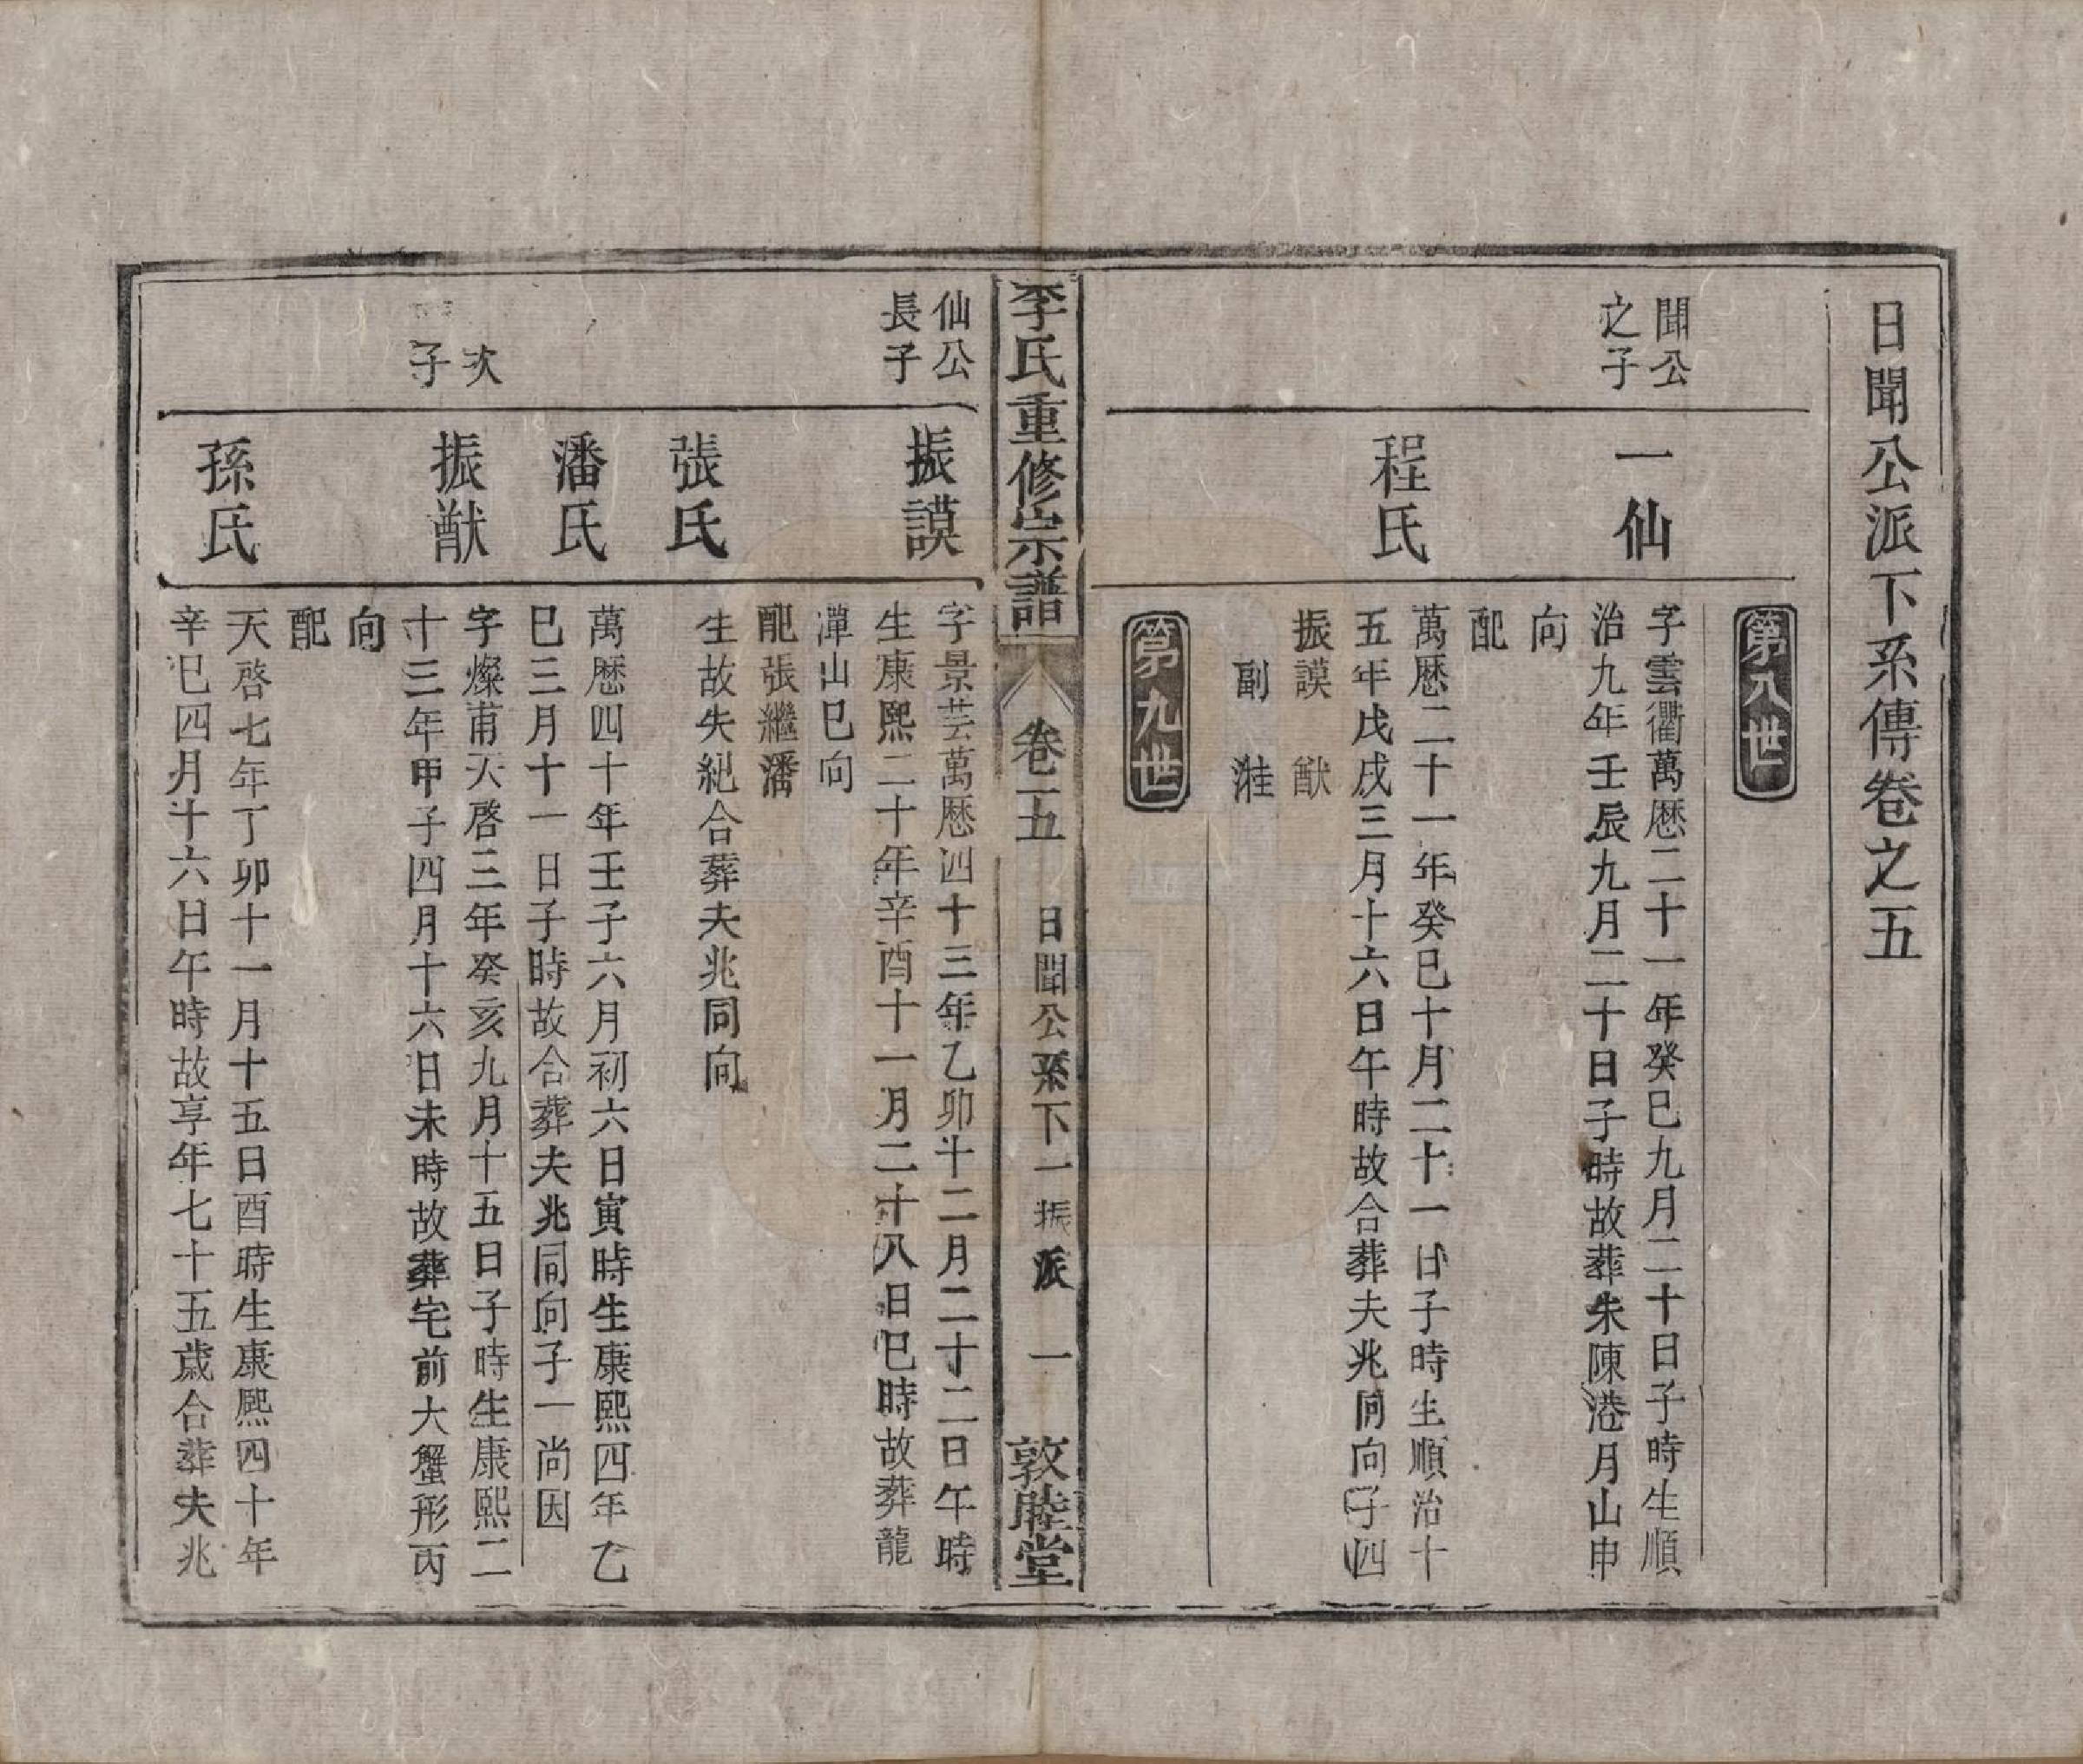 日聞公派下系傳卷之五
第八世
聞公
之子
一仙
字雲衢萬曆二十一年癸巳九月二十日子時生順
治九年壬辰九月二十日子時故葬朱陳港月山申
向
程氏
配
萬曆二十一年癸巳十月二十一日子時生順治十
五年戊戌三月十六日午時故合葬夫兆同向子四
振謨 猷
副 漄
第九世
李氏重修宗譜
卷五
日聞公系下一振派 一
敦睦堂
仙公
長子
振謨
字景芸萬曆四十三年乙卯十二月二十二日午時
生康熙二十年辛酉十一月二十八日巳時故葬龍
潭山巳向
配張繼潘
張氏
生故失紀合葬夫兆同向
潘氏
萬曆四十年壬子六月初六日寅時生康熙四年乙
巳三月十一日子時故合葬夫兆同向子一尚因
次
子
振猷
字燦甫天啓三年癸亥九月十五日子時生康熙二
十三年甲子四月十六日未時故葬宅前大蟹形丙
向
孫氏
配
天啓七年丁卯十一月十五日酉時生康熙四十年
辛巳四月十六日午時故享年七十五歲合葬夫兆